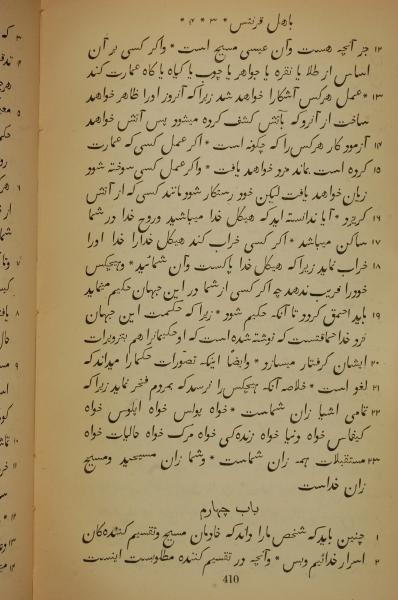 باهل قرنتس * ۳ * ۴ *
۱۲ جز آنچه هست وآن عیسی مسیح است * واگر کسی بر آن
اساس از طلا یا نقره یا جواهر یا چوب یا گیاه یا کاه عمارت کند
۱۳ * عمل هرکس آشکارا خواهد شد زیرا که آنروز اورا ظاهر خواهد
ساخت از آنرو که بآتش کشف کرده میشود پس آتش خواهد
۱۴ آزمود کار هرکس را که چگونه است * اگر عمل کسی که عمارت
۱۵ کرده است بماند مزد خواهد یافت * واگر عمل کسی سوخته شود
زیان خواهد یافت لیکن خود رستگار شود مانند کسی که از آتش
۱۶ گریزد * آیا ندانسته اید که هیکل خدا میباشید وروح خدا در شما
۱۷ ساکن میباشد * اگر کسی خراب کند هیکل خدارا خدا اورا
۱۸ خراب نماید زیرا که هیکل خدا پاکست وآن شمائید * وهیچکس
خودرا فریب ندهد چه اگر کسی از شما در این جهان حکیم مینماید
۱۹ باید احمق گردد تا آنکه حکیم شود * زیرا که حکمت این جهان
نزد خدا حماقتست که نوشته شده است که او حکیمانرا هم بتزویرات
۲۰ ایشان گرفتار میسازد * وایضا اینکه خداوند تصورات حکمارا میداند که
۲۱ لغو است * خلاصه آنکه هیچکس را نرسد که بمردم فخر نماید زیرا که
۲۲ تمامی اشیا زان شماست * خواه پولس خواه اپلوس خواه
کیفاس خواه دنیا خواه زندگی خواه مرگ خواه حالیات خواه
۲۳ مستقبلات همه زان شماست * وشما زان مسیحید ومسیح
زان خداست
باب چهارم
۱ چنین باید که شخص مارا داند که خادمان مسیح وتقسیم کننده‌گان
۲ اسرار خدائیم وبس * وآنچه در تقسیم کننده مطلوبست اینست
410